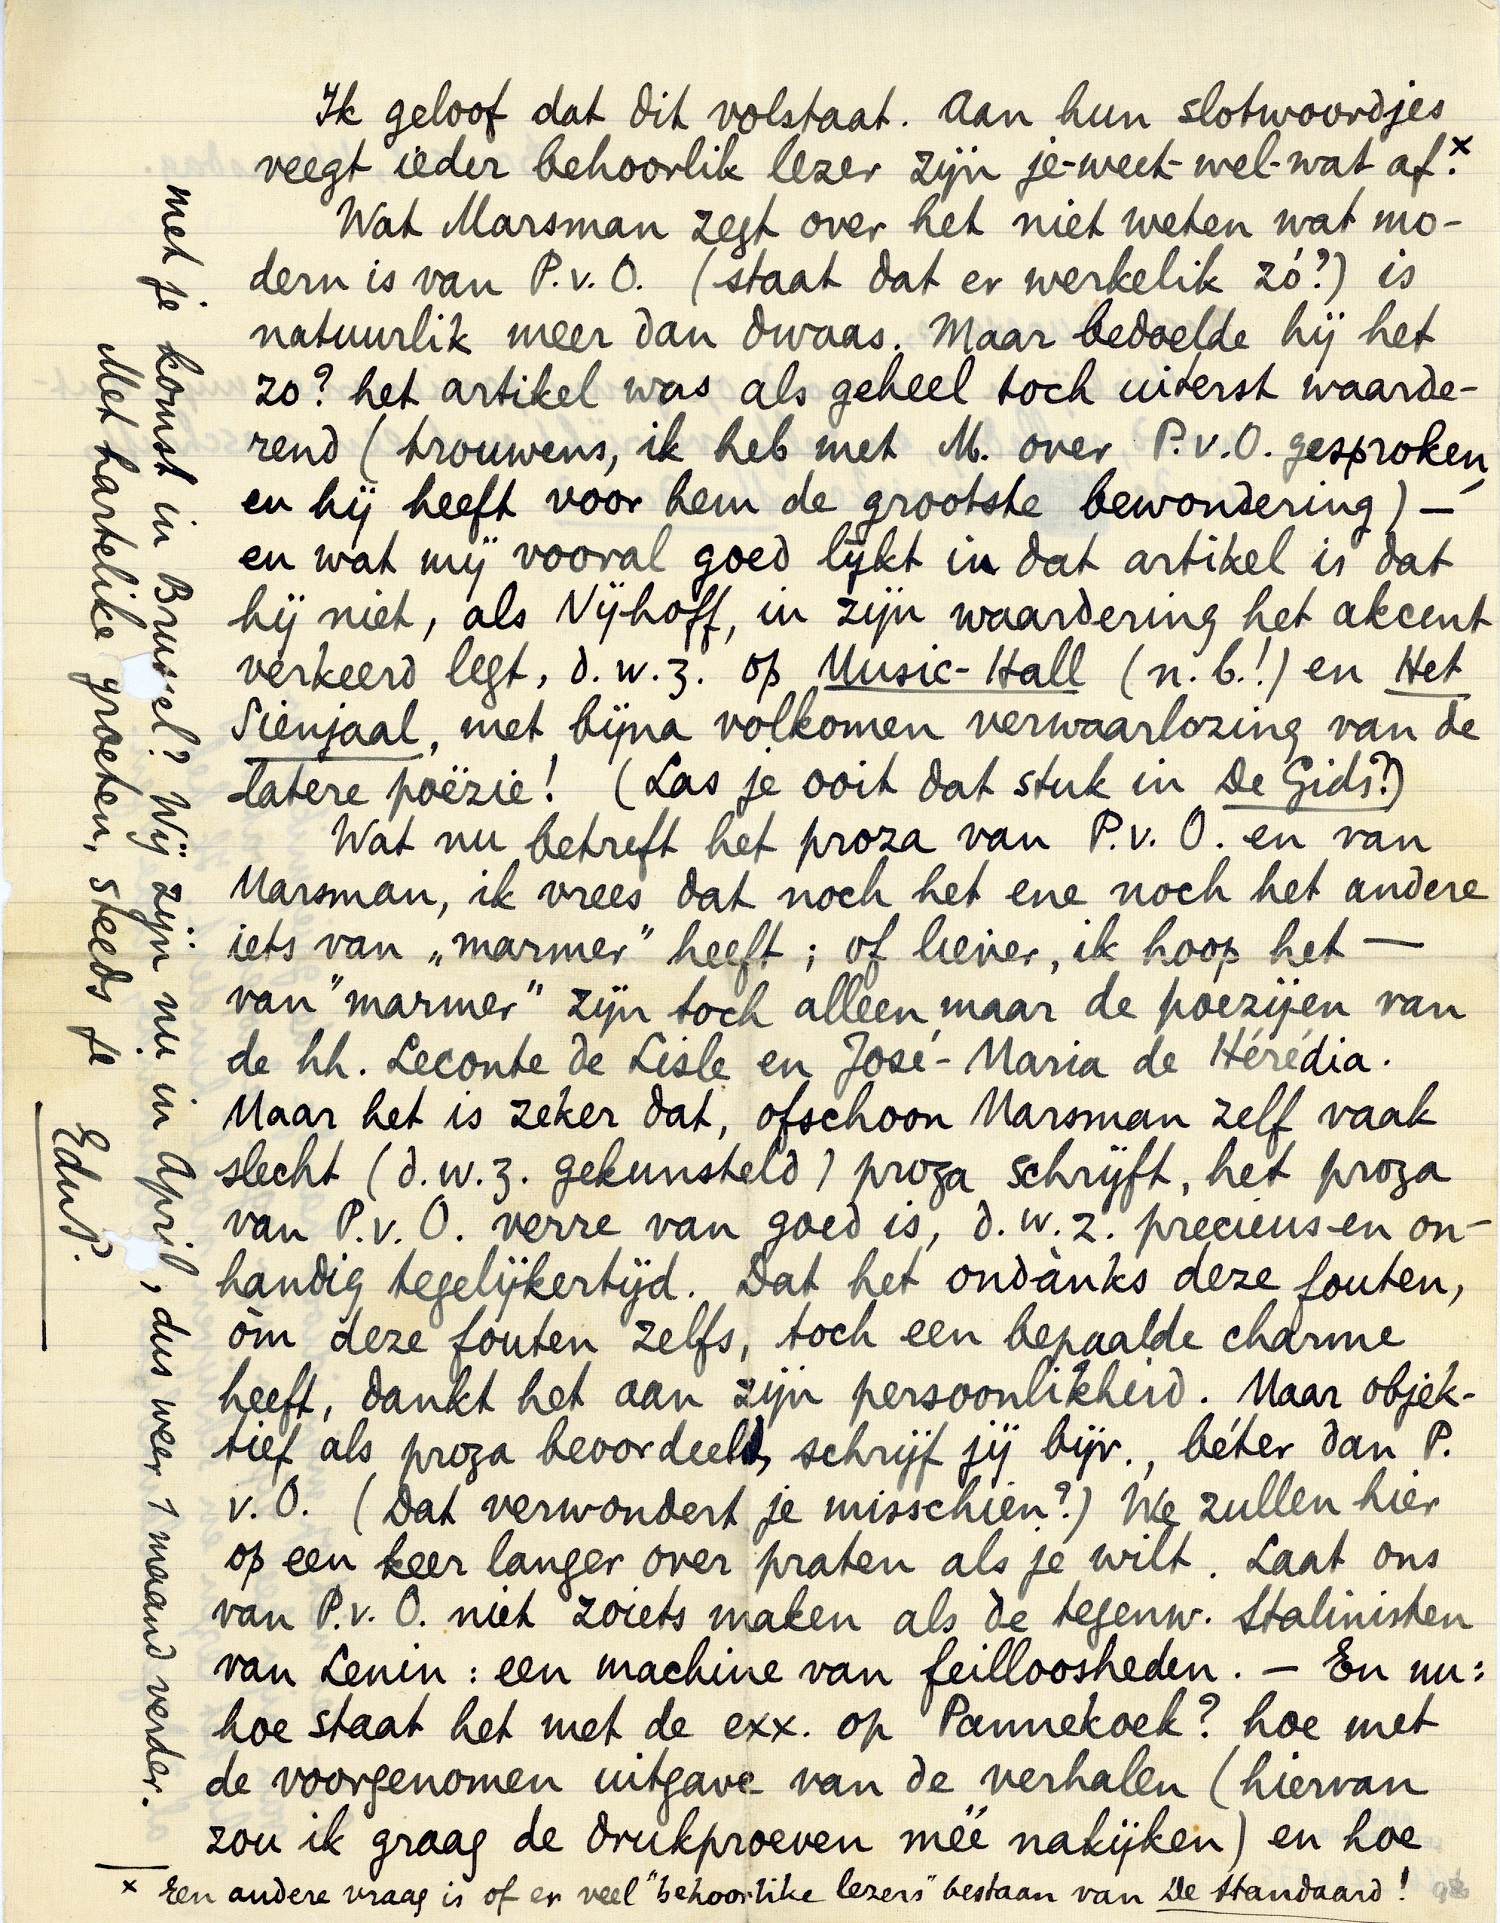 Ik geloof dat dit volstaat. Aan hun slotwoordjes
veegt ieder behoorlik lezer zijn je-weet-wel-wat af.x
Wat Marsman zegt over het niet weten wat mo-
dern is van P.v.O. (staat dat er werkelik zó?) is
natuurlik meer dan dwaas. Maar bedoelde hij het
zo? het artikel was als geheel toch uiterst waarde-
rend (trouwens, ik heb met M. over P.v.O. gesproken,
en hij heeft voor hem de grootste bewondering) —
en wat mij vooral goed lijkt in dat artikel is dat
hij niet, als Nijhoff, in zijn waardering het akcent
verkeerd legt, d.w.z. op Music-Hall (n.b.!) en Het
Sienjaal, met bijna volkomen verwaarlozing van de
latere poëzie! (Las je ooit dat stuk in De Gids?)
Wat nu betreft het proza van P.v.O. en van
Marsman, ik vrees dat noch het ene noch het andere
iets van „marmer” heeft; of liever, ik hoop het —
van "marmer" zijn toch alleen maar de poezijen van
de hh. Leconte de Lisle en José-Maria de Hérédia.
Maar het is zeker dat, ofschoon Marsman zelf vaak
slecht (d.w.z. gekunsteld) proza schrijft, het proza
van P.v.O. verre van goed is, d.w.z. precieus en on-
handig tegelijkertijd. Dat het ondànks deze fouten,
òm deze fouten zelfs, toch een bepaalde charme
heeft, dankt het aan zijn persoonlikheid. Maar objek-
tief als proza beoordeeld, schrijf jij bijv., béter dan P.
v.O. (Dat verwondert je misschien?) We zullen hier
op een keer langer over praten als je wilt. Laat ons
van P.v.O. niet zoiets maken als de tegenw. Stalinisten
van Lenin: een machine van feilloosheden. — En nu:
hoe staat het met de exx. op Pannekoek? hoe met
de voorgenomen uitgave van de verhalen (hiervan
zou ik graag de drukproeven méé nakijken) en hoe
met je komst in Brussel? Wij zijn nu in April, dus weer 1 maand verder.
Met hartelike groeten, steeds je
EduP.
x Een andere vraag is of er veel "behoorlike lezers" bestaan van De Standaard!